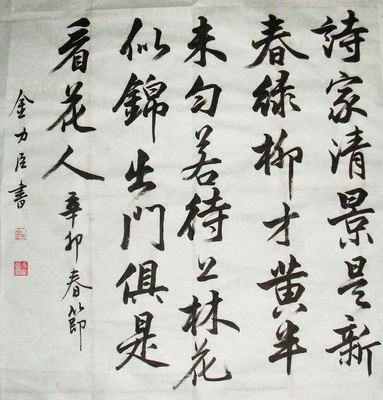 詩家清景是新
春緑柳才黄半
未匀若待上林花
似錦出門俱是
看花人 辛卯春節
金力臣書